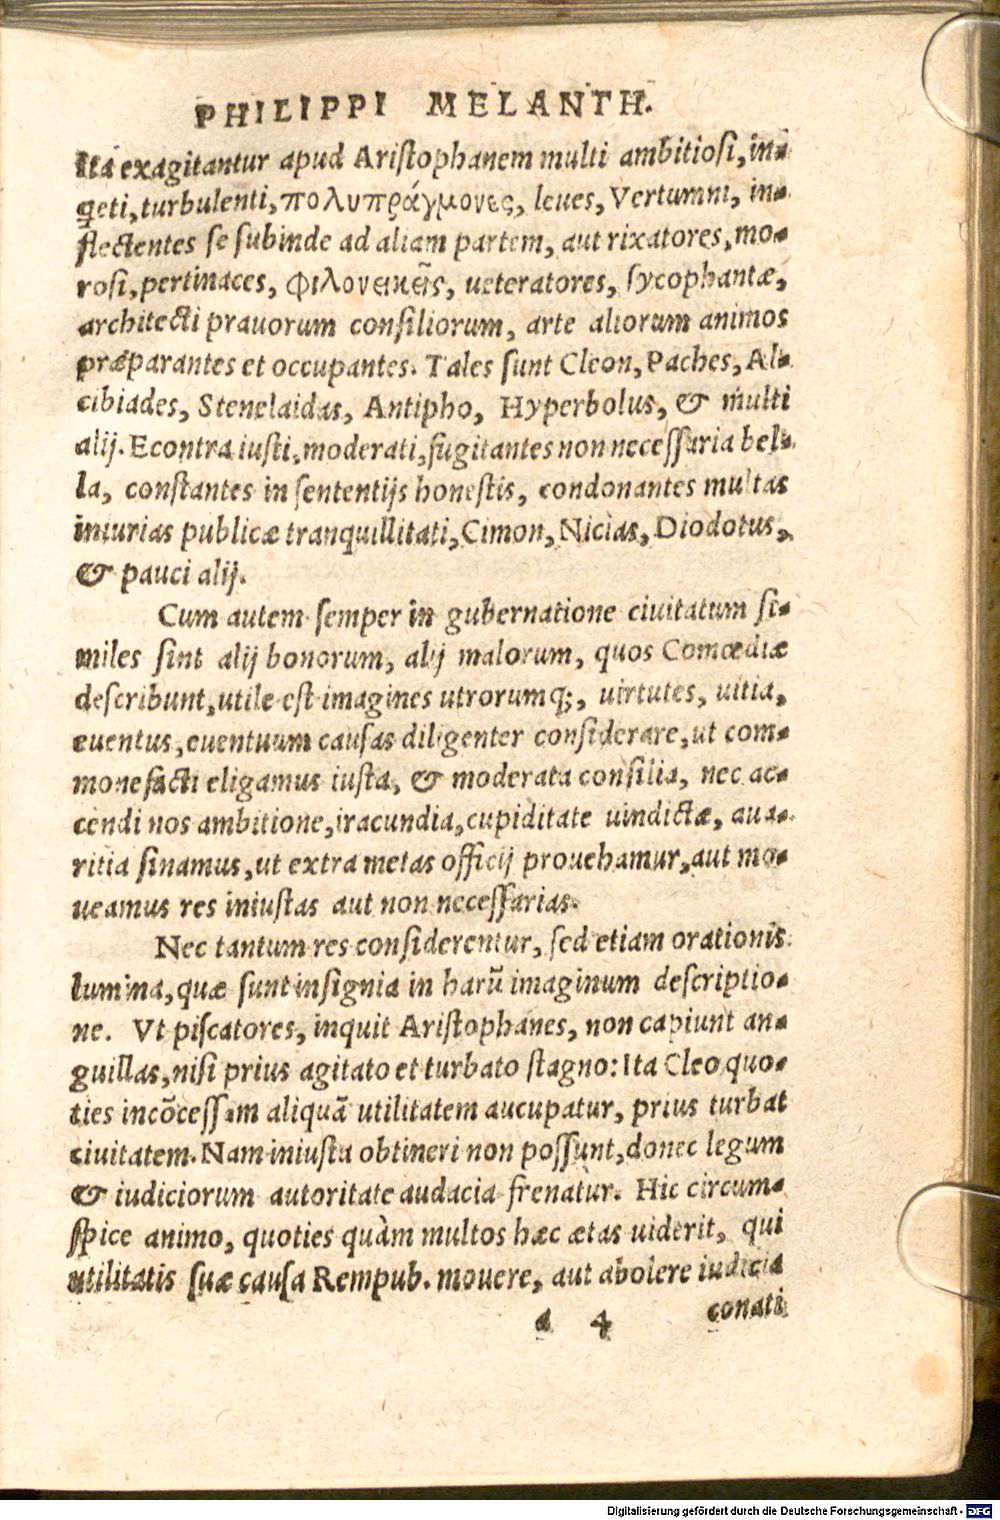 PHILIPPI MELANTH.
Ita exagitantur apud Aristophanem multi ambitiosi, in-
qeti, turbulenti, πολυπράγμονες, leues, Vertumni, in-
flectentes se subinde ad aliam partem, aut rixatores, mo-
rosi, pertinaces, φιλονεικεῖς, ueteratores, sycophantæ,
architecti prauorum consiliorum, arte aliorum animos
præparantes et occupantes. Tales sunt Cleon, Paches, Al-
cibiades, Stenelaidas, Antipho, Hyperbolus, & multi
alij. Econtra iusti, moderati, fugitantes non necessaria bel-
la, constantes in sententijs honestis, condonantes multas
iniurias publicæ tranquillitati, Cimon, Nicias, Diodotus,
& pauci alij.
Cum autem semper in gubernatione ciuitatum si-
miles sint alij bonorum, alij malorum, quos Comœdiæ
describunt, utile est imagines utrorumq;, uirtutes, uitia,
euentus, euentuum causas diligenter considerare, ut com-
monefacti eligamus iusta, & moderata consilia, nec ac-
cendi nos ambitione, iracundia, cupiditate uindictæ, aua-
ritia sinamus, ut extra metas officij prouehamur, aut mo-
ueamus res iniustas aut non necessarias.
Nec tantum res considerentur, sed etiam orationis
lumina, quæ sunt insignia in harũ imaginum descriptio-
ne. Vt piscatores, inquit Aristophanes, non capiunt an-
guillas, nisi prius agitato et turbato stagno: Ita Cleo quo-
ties incõcessam aliquã utilitatem aucupatur, prius turbat
ciuitatem. Nam iniusta obtineri non possunt, donec legum
& iudiciorum autoritate audacia frenatur. Hic circum-
spice animo, quoties quàm multos hæc ætas uiderit, qui
utilitatis suæ causa Rempub. mouere, aut abolere iudicia
a 4 conati
Digitalisierung gefördert durch die Deutsche Forschungsgemeinschaft - DFG